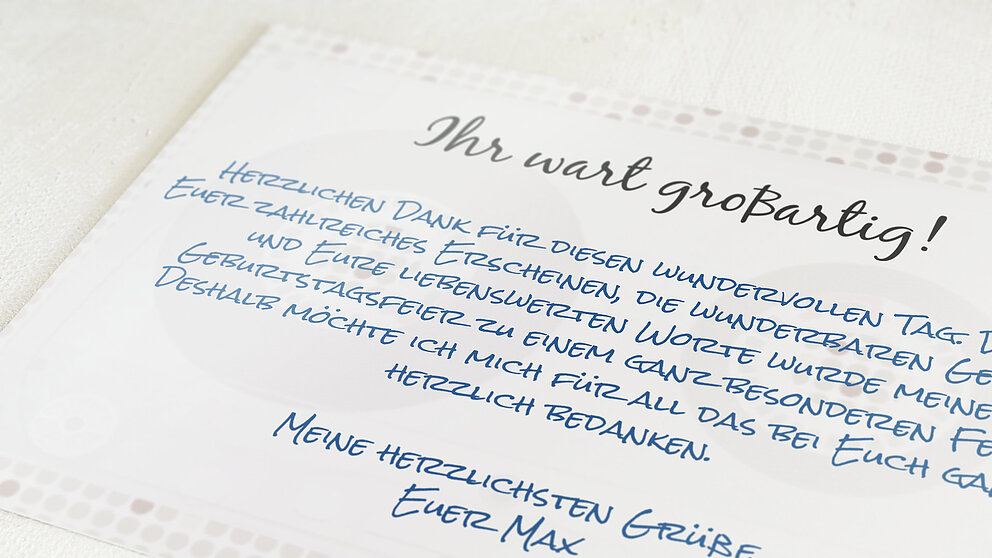 Ihr wart großartig!
Herzlichen Dank für diesen wundervollen Tag.
Euer zahlreiches Erscheinen, die wunderbaren
und Eure liebenswerten Worte wurde meine
Geburtstagsfeier zu einem ganz besonderen
Deshalb möchte ich mich für all das bei Euch
herzlich bedanken.
Meine herzlichsten Grüße
Euer Max